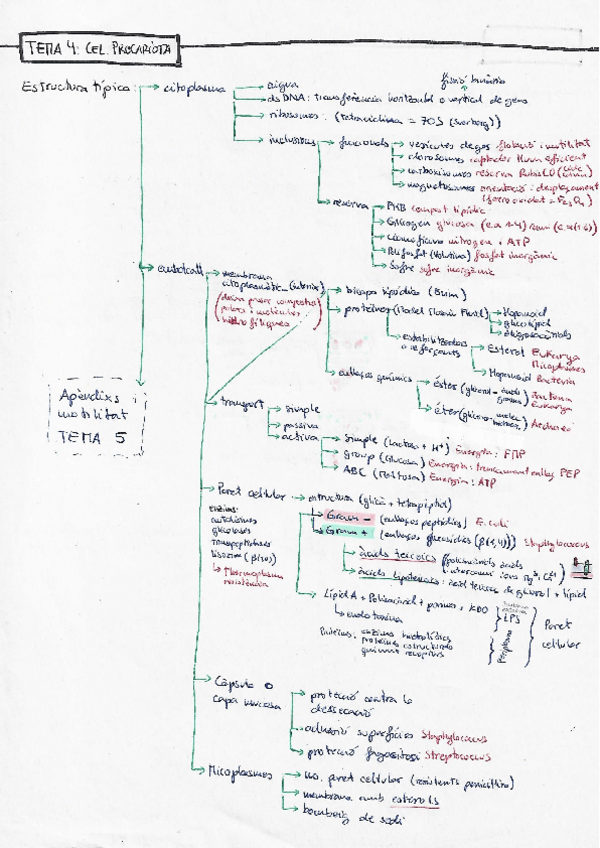 TEMA 4: CEL. PROCARIOTA
Estructura típica:
citoplasma
aigua
fissió binària
ds DNA: transferència horitzontal o vertical de gens
ribosomes: (tetraciclina = 70S (Sverberg))
inclusions
funcionals
vesícules de gas flotació i motilitat
clorosomes captador llum eficient
carboxisomes reserva RubisCO
magnetosomes orientació i desplaçament
reserva
PHB compost lipídic
Glicogen glucosa
cianoficina nitrogen + ATP
Polifosfat (Volutina) fosfat inorgànic
Sofre sofre inorgànic
embolcall
membrana
citoplasmàtica
deixa passar compostos
polars i molècules
hidrofíliques
bicapa lipídica (8nm)
proteïnes (Model Mosaic Fluid)
Hopanoid
glicolípid
estabilitzadors
o reforçants
Esterol Eukarya
Micoplasmes
Hopanoid Bacteria
enllaços químics
èster (glicerol - àcids grassos) Bacteria
Eukarya
èter (glicerol - Archaea
transport
simple
passiva
activa
simple (lactosa + H+) Energia: FMP
group (Glucosa) Energia: trencament enllaç PEP
ABC (Maltosa) Energia: ATP
Apèndixs i
motilitat
TEMA 5
Paret cel·lular
estructura (glicà + tetrapèptid)
enzims:
autolisines
transpeptidases
lisozim
Thermoplasma
resistència
Gram - (enllaços peptídics) E. coli
Gram + (enllaços glucosídics (β(1,4)) Staphylococcus
àcids teicoics
àcids lipoteicoics: àcid teicoic de glicerol + lípid
Lípid A + Polisacàrid + porines, KDO
LPS
endotoxina
Proteïnes: enzims hidrolítics
proteïnes estructurals
Periplasma
Paret
cel·lular
Càpsula o
capa mucosa
protecció contra la
dessecació
adhesió superfícies Staphylococcus
protecció fagocitosi Streptococcus
Micoplasmes
no paret cel·lular (resistents penicil·lina)
membrana amb esterols
bomba de sodi